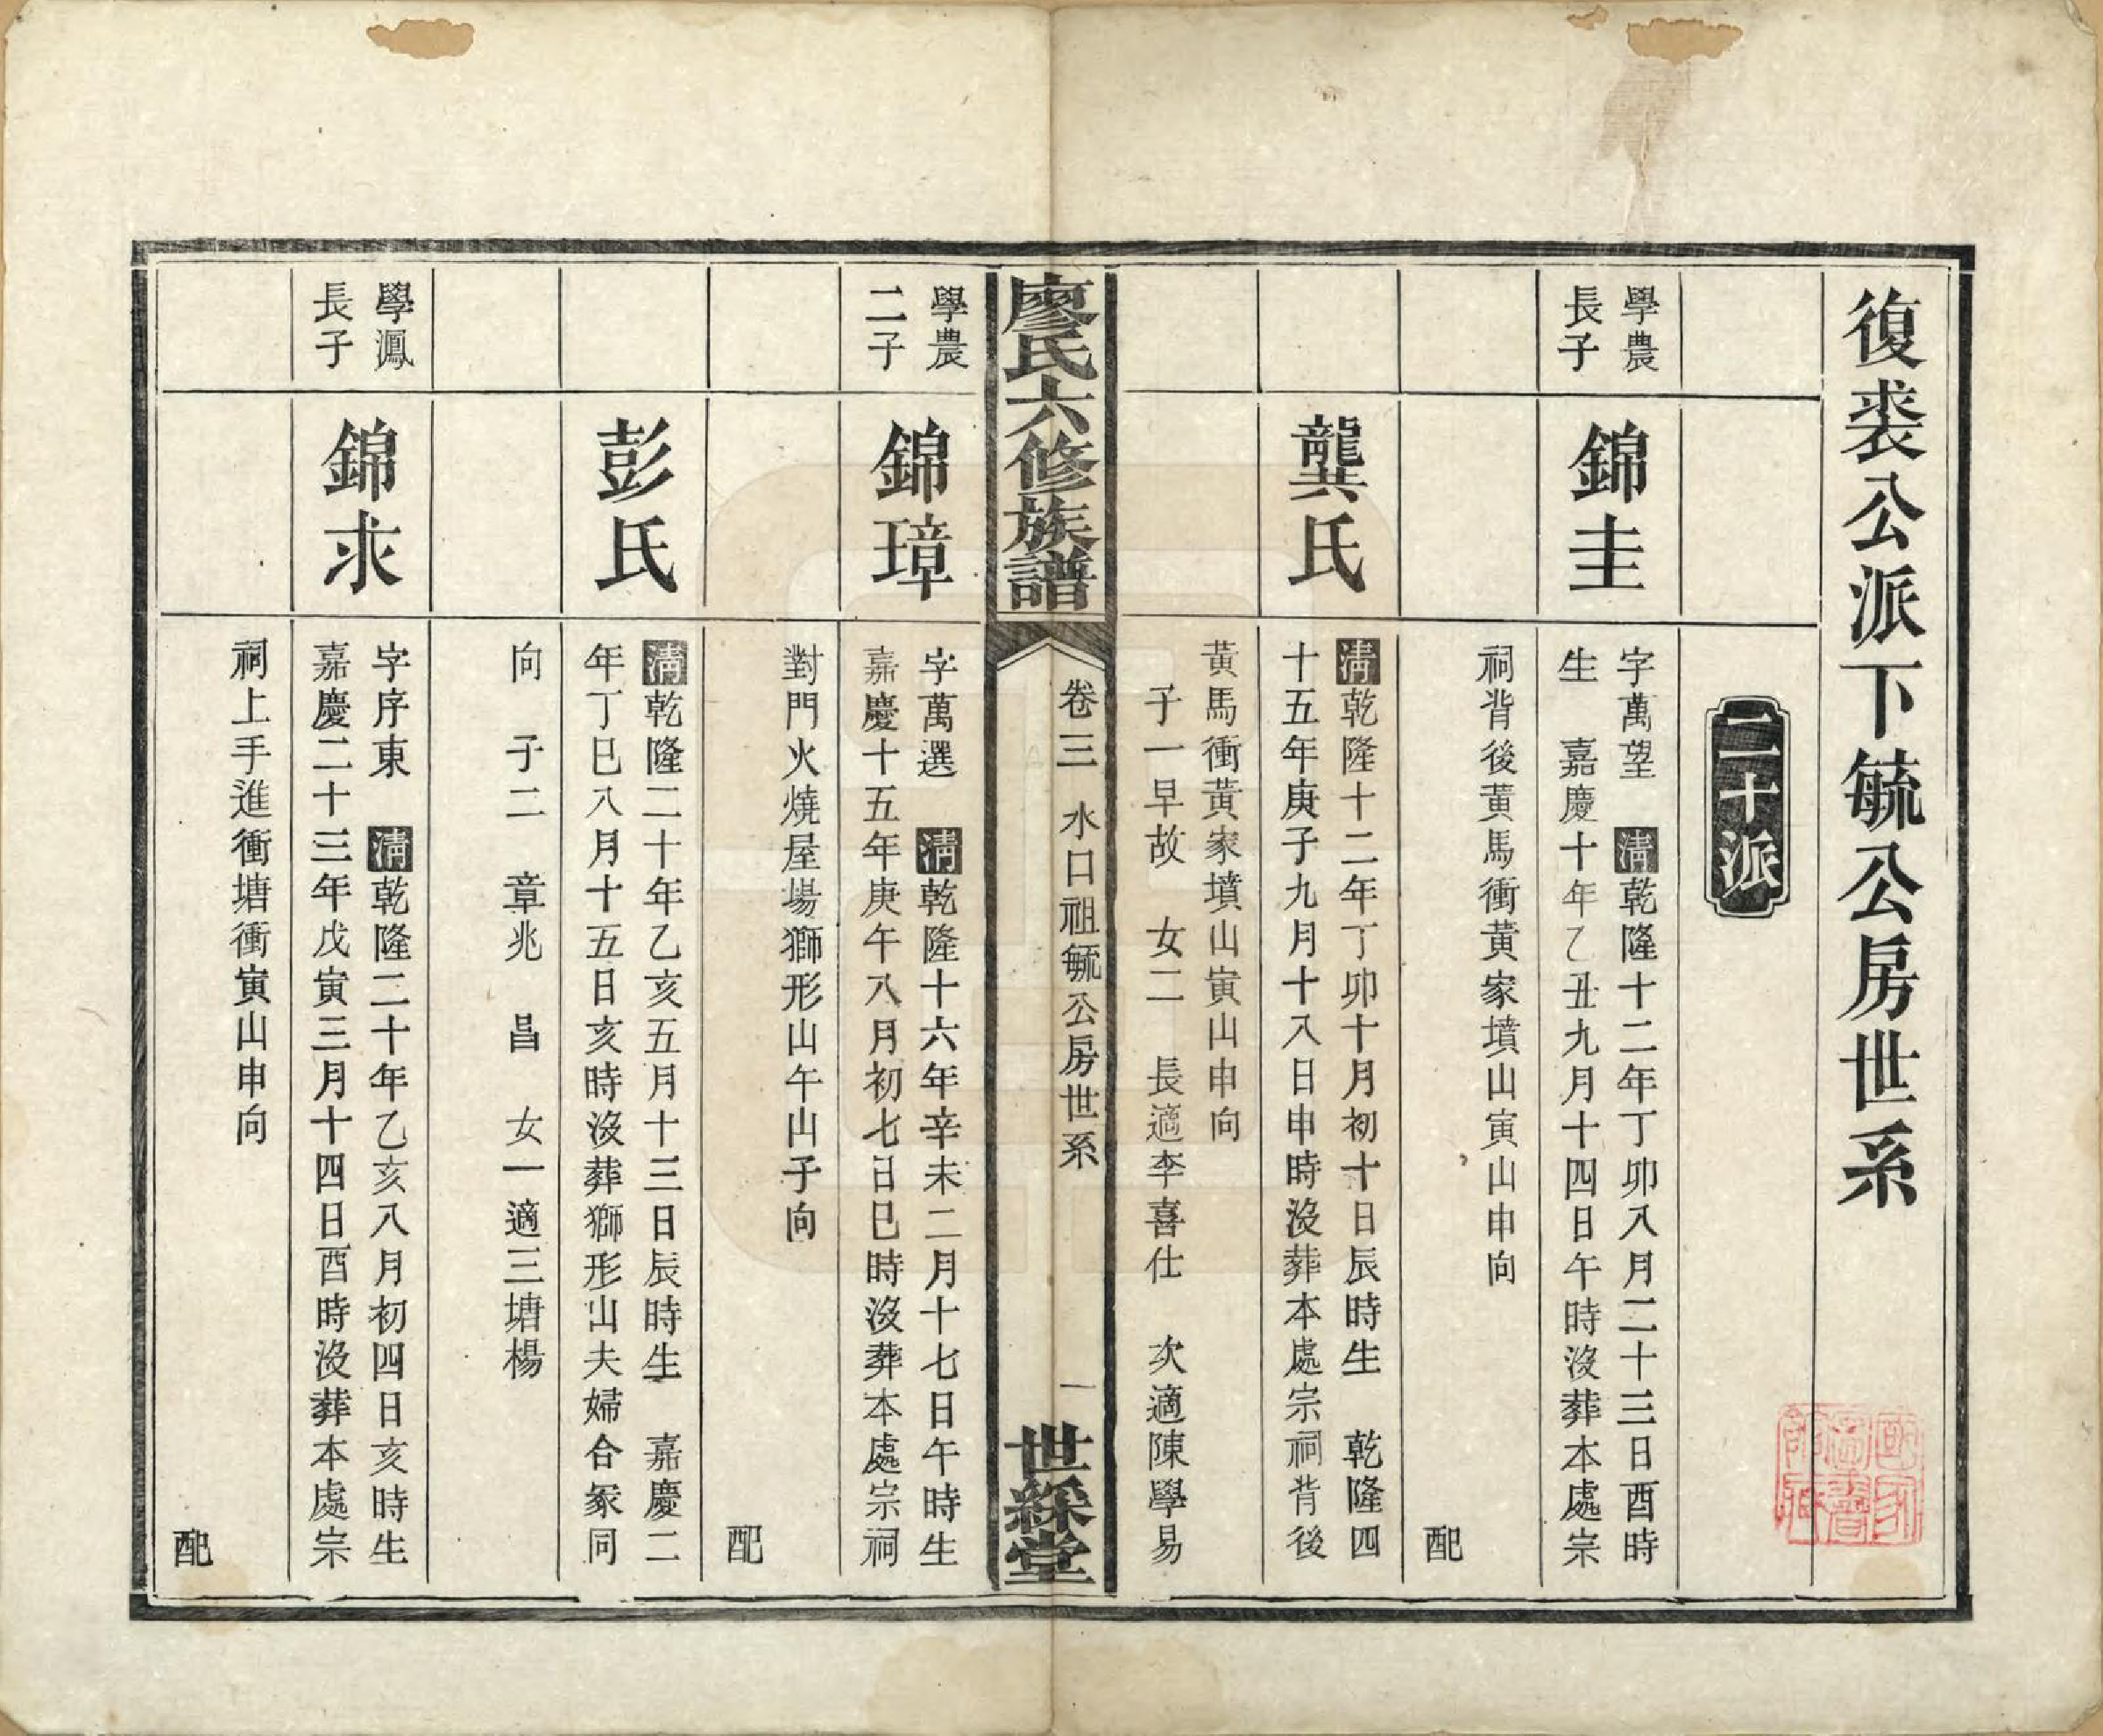 復裘公派下毓公房世系
二十派
學農
長子
錦圭
字萬望　清乾隆十二年丁卯八月二十三日酉時
生　嘉慶十年乙丑九月十四日午時沒葬本處宗
祠背後黃馬衝黃家墳山寅山申向
配
龔氏
清乾隆十二年丁卯十月初十日辰時生　乾隆四
十五年庚子九月十八日申時沒葬本處宗祠背後
黃馬衝黃家墳山寅山申向
子一早故　女二　長適李喜仕　次適陳學易
廖氏六修族譜
卷三　水口祖毓公房世系
一
世綵堂
學農
二子
錦璋
字萬選　清乾隆十六年辛未二月十七日午時生
嘉慶十五年庚午八月初七日巳時沒葬本處宗祠
對門火燒屋場獅形山午山子向
配
彭氏
清乾隆二十年乙亥五月十三日辰時生　嘉慶二
年丁巳八月十五日亥時沒葬獅形山夫婦合冢同
向　子二　章兆　昌　女一適三塘楊
學鳳
長子
錦求
字序東　清乾隆二十年乙亥八月初四日亥時生
嘉慶二十三年戊寅三月十四日酉時沒葬本處宗
祠上手進衝塘衝寅山申向
配